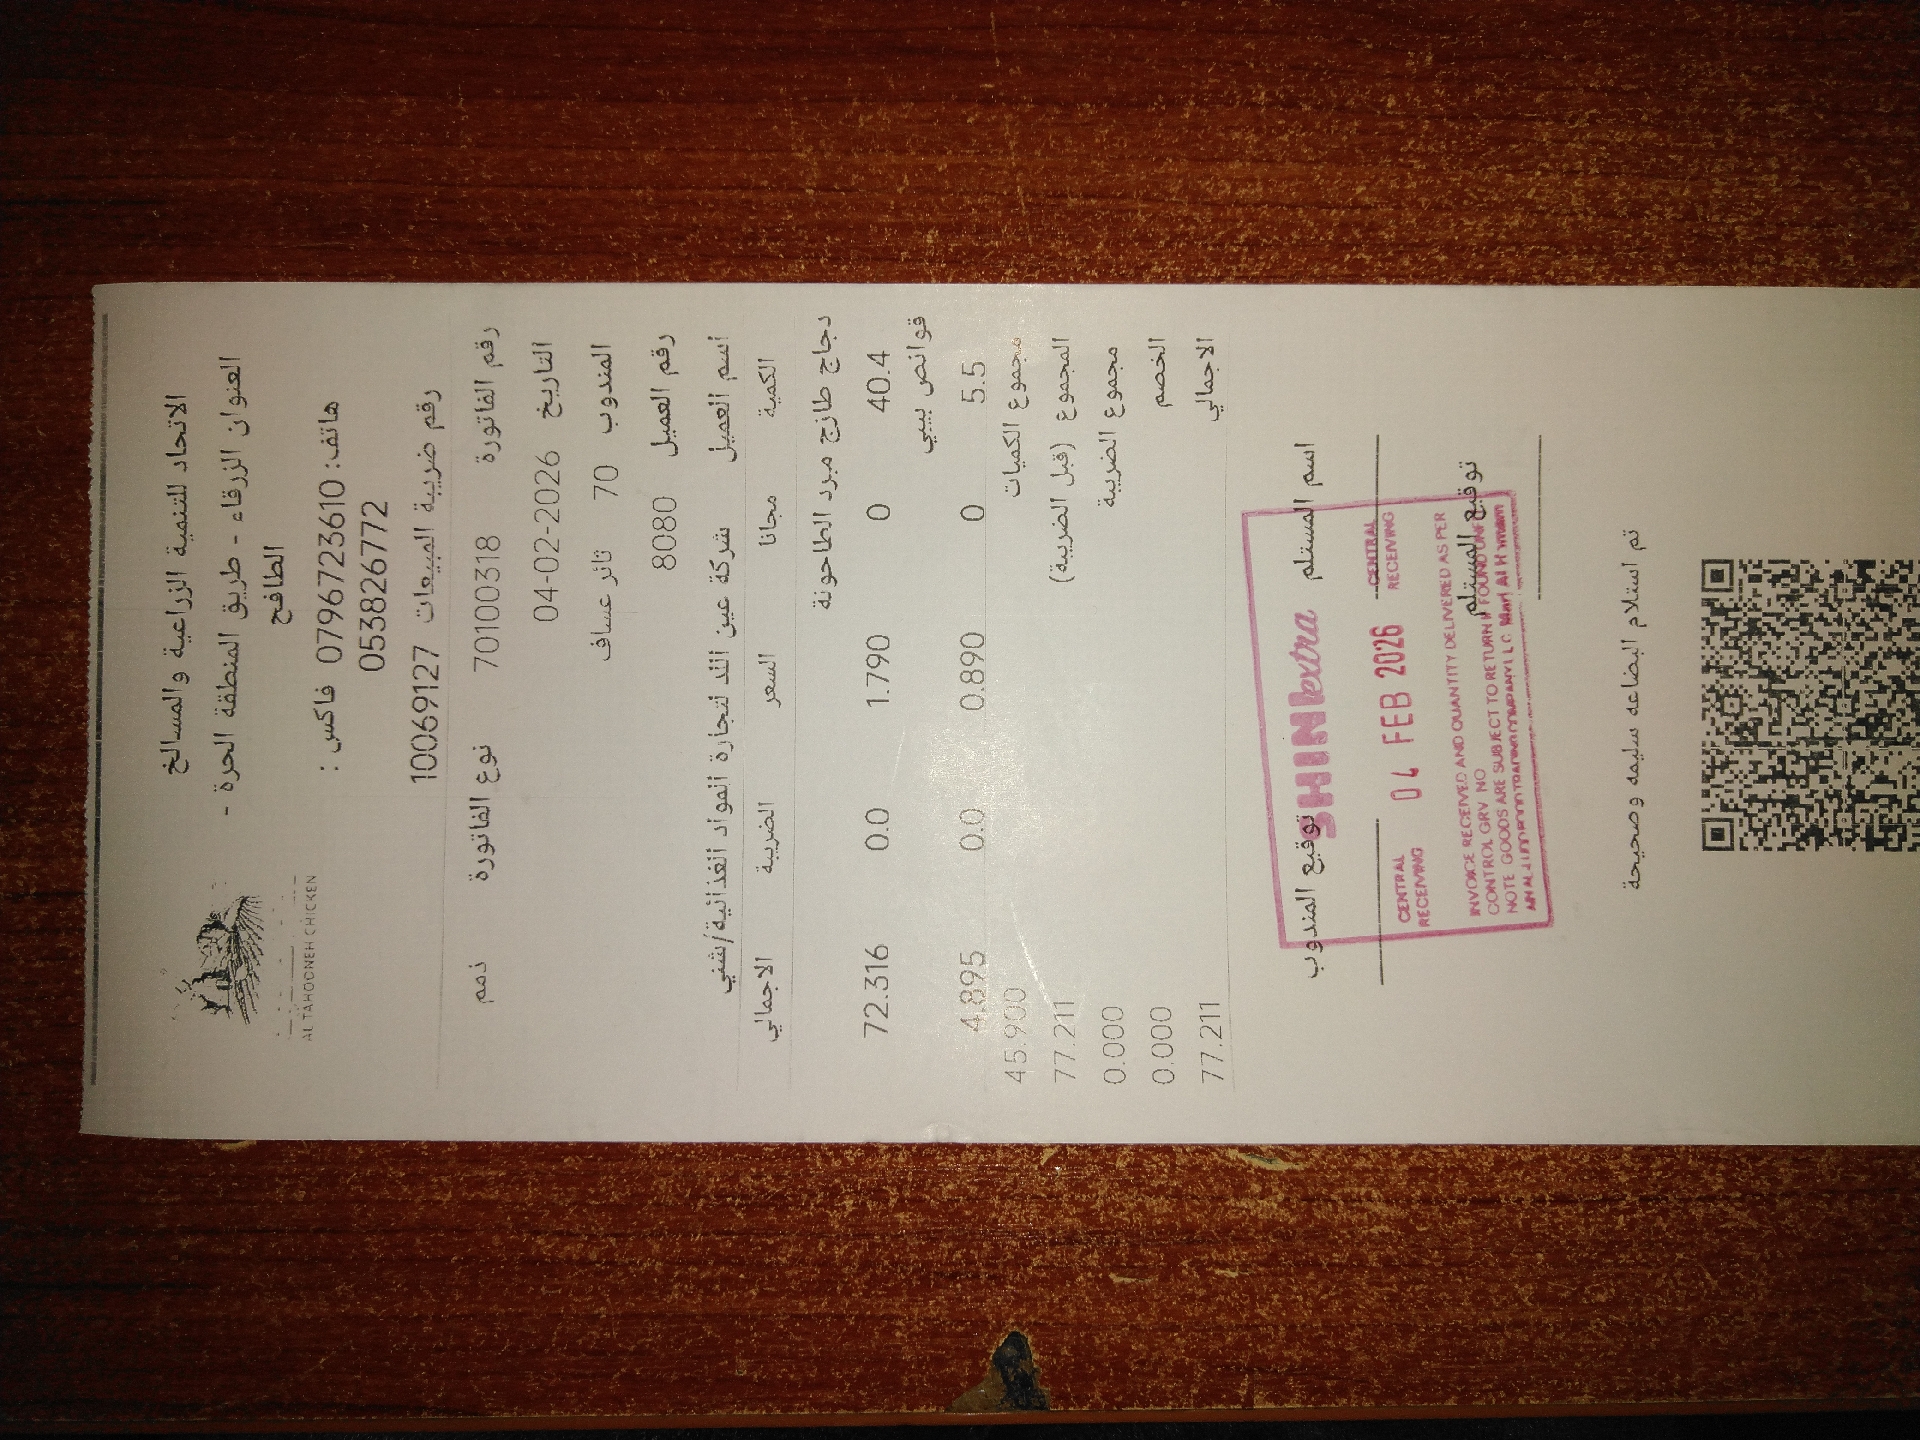 AL TAHOONEH CHICKEN
الاتحاد للتنمية الزراعية والمسالخ
العنوان الزرقاء - طريق المنطقة الحرة -
الطافح
هاتف: 0796723610 فاكس :
0538266772
رقم ضريبة المبيعات 10069127
رقم الفاتورة 70100318 نوع الفاتورة ذمم
التاريخ 04-02-2026
المندوب 70 ثائر عساف
رقم العميل 8080
اسم العميل شركة عين الله لتجارة المواد الغذائية/شني
الكمية مجانا السعر الضريبة الاجمالي
دجاج طازج مبرد الطاحونة
40.4 0 1.790 0.0 72.316
قوانص بيبي
5.5 0 0.890 0.0 4.895
مجموع الكميات 45.900
المجموع (قبل الضريبة) 77.211
مجموع الضريبة 0.000
الخصم 0.000
الاجمالي 77.211
اسم المستلم توقيع المندوب
SHINI extra
CENTRAL RECEIVING 04 FEB 2026 CENTRAL RECEIVING
توقيع المستلم
INVOICE RECEIVED AND QUANTITY DELIVERED AS PER
CONTROL GRV NO
NOTE GOODS ARE SUBJECT TO RETURN IF FOUND UNF
تم استلام البضاعه سليمه وصحيحة